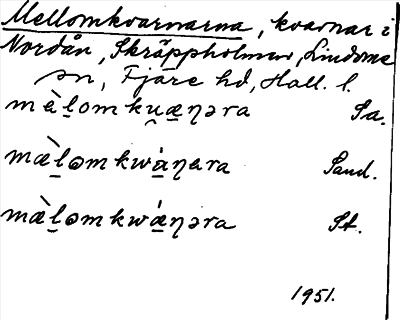 Mellomkvarnarna, kvarnar i
Nordån, Skräppholmen, Lindome
sn, Fjäre hd, Hall. l.
mæ̀l̠omku̯æ̠ŋəra Sa.
mæ̀l̠ɵmkwá̠ŋɐra Sand.
mæ̀l̠ɵmkwǽ̠ŋəra St.
1951.